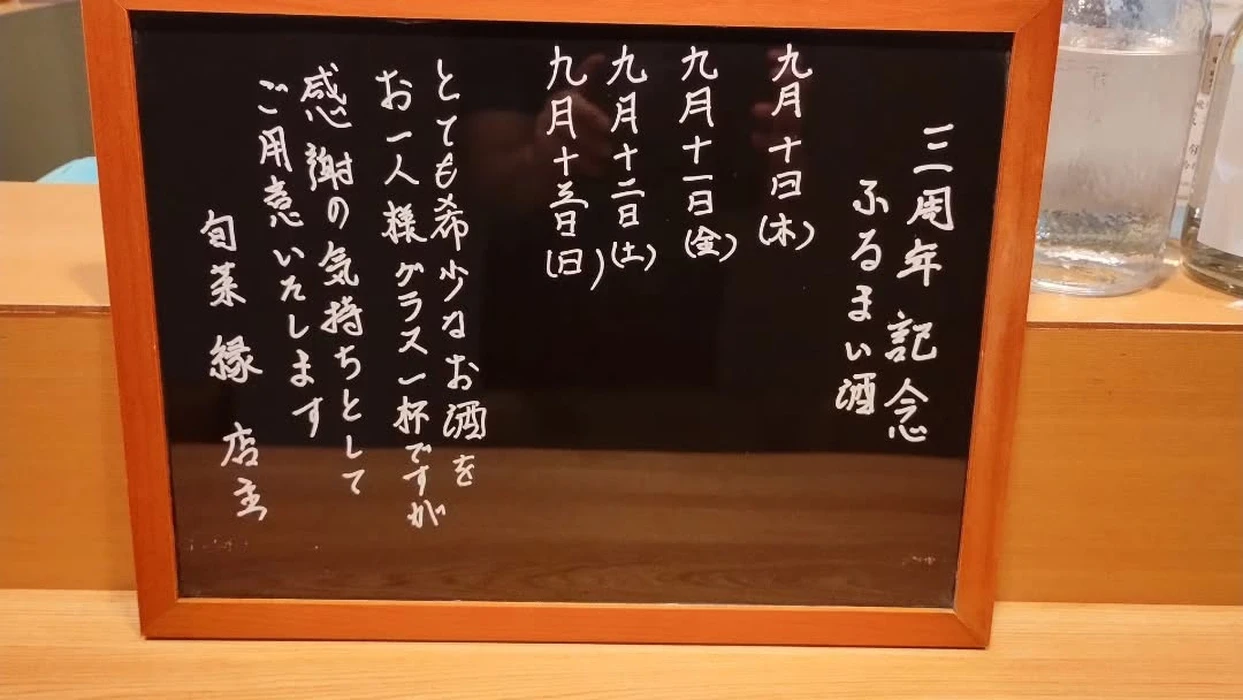 三周年 記念
ふるまい酒
九月十日(木)
九月十一日(金)
九月十二日(土)
九月十三日(日)
とても希少なお酒を
お一人様グラス一杯ですが
感謝の気持ちとして
ご用意いたします
旬菜 縁 店主